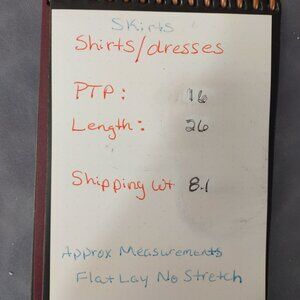 Skirts
Shirts/dresses
PTP: 16
Length: 26
Shipping wt 8.1
Approx Measurements
Flat Lay No Stretch